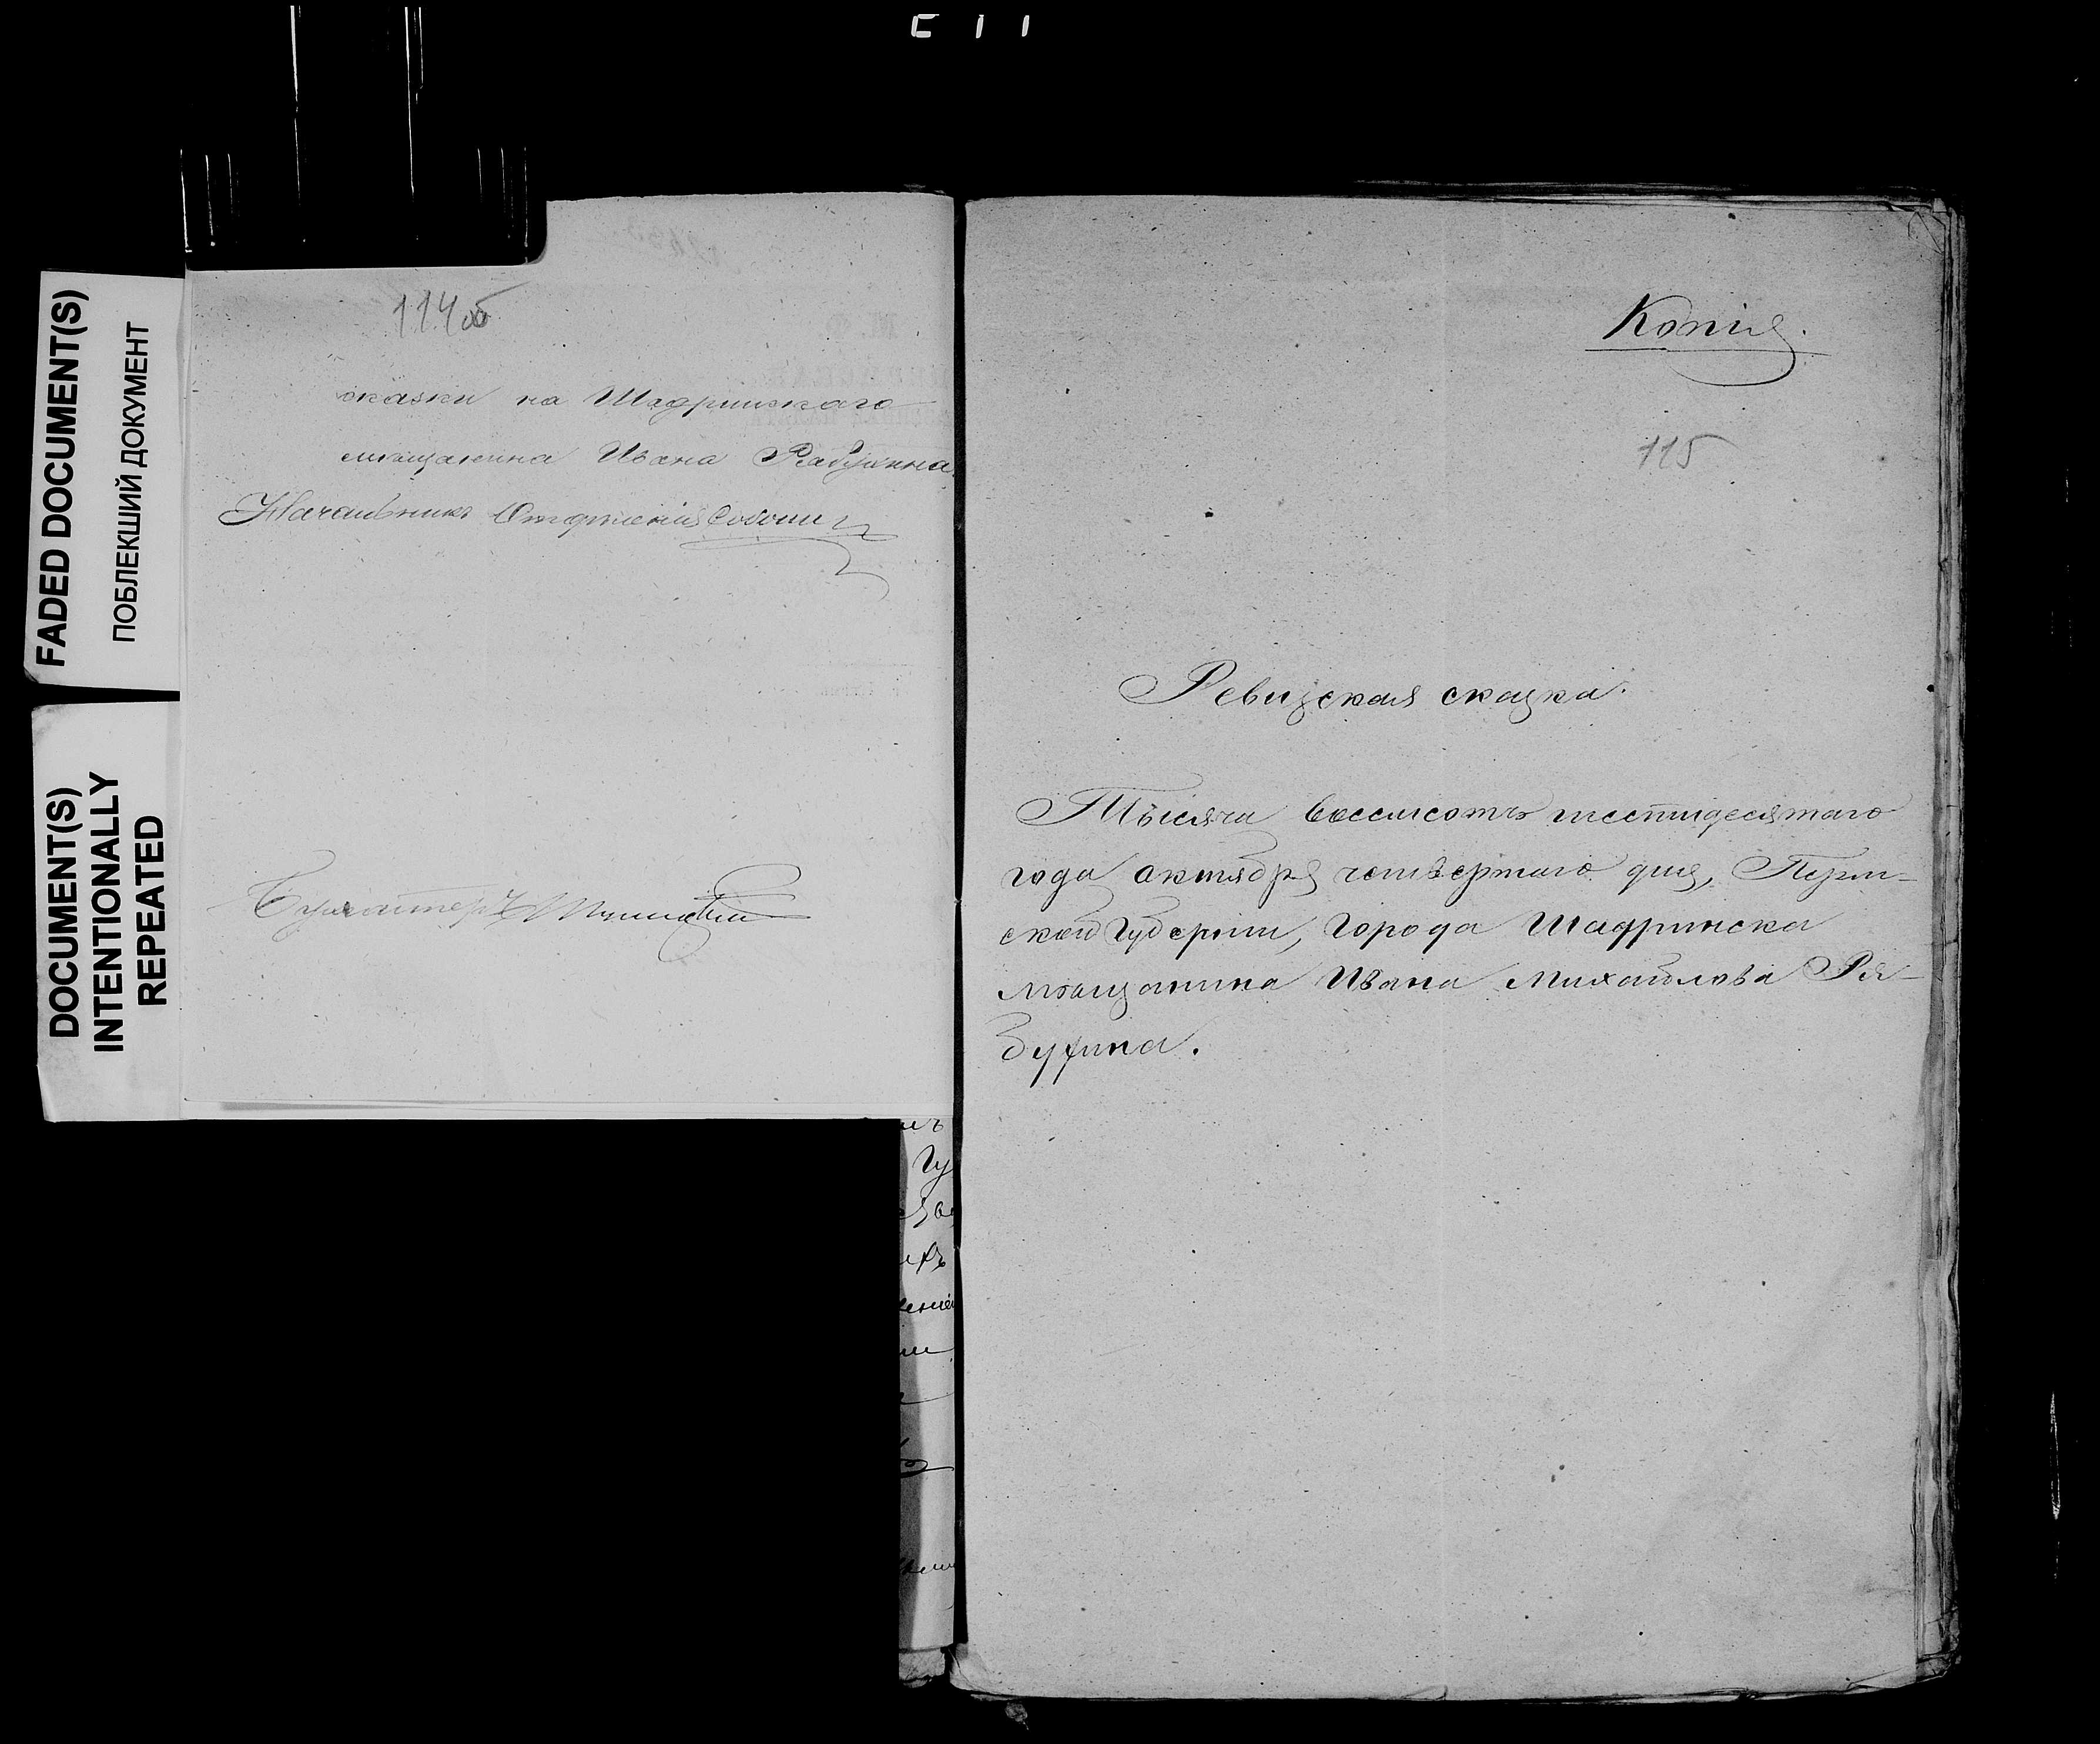 FADED DOCUMENT(S)
ПОБЛЕКШИЙ ДОКУМЕНТ
DOCUMENT(S)
INTENTIONALLY
REPEATED
114об
сказки на Шадринскаго
мѣщанина Ивана Рябухина
Начальникъ Отдѣленія
Бухгалтеръ
Копія.
115
Ревизская сказка.
Тысяча восемсотъ шестидесятаго
года октября четвертаго дня, Перм-
ской Губерніи, Города Шадринска
мѣщанина Ивана Михайлова Ря-
бухина.
Гу